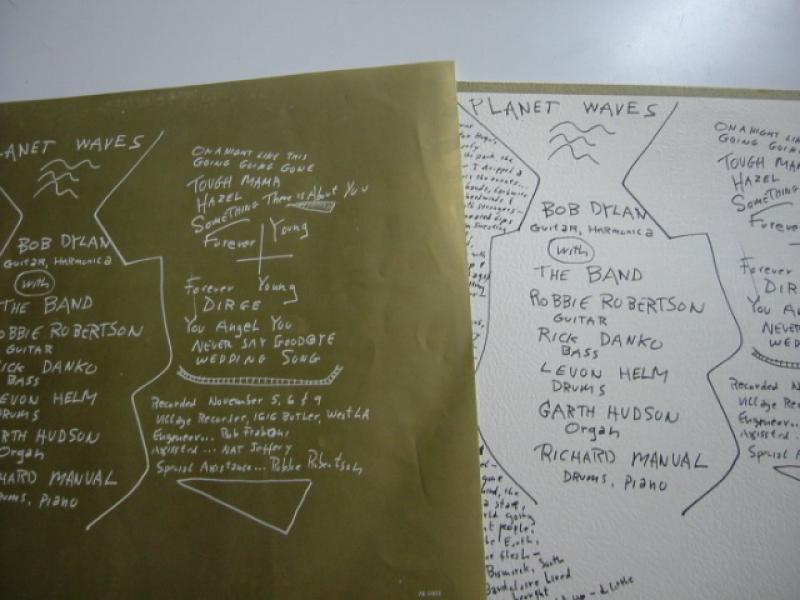 ANET WAVES
BOB DYLAN
GUITAR, HARMONICA
with
THE BAND
OBBIE ROBERTSON
GUITAR
ICK DANKO
BASS
EVON HELM
DRUMS
RTH HUDSON
Organ
HARD MANUAL
DRUMS, PIANO
ON A NIGHT LIKE THIS
GOING GOING GONE
TOUGH MAMA
HAZEL
SOMETHING There is About You
Forever Young
Forever Young
DIRGE
You Angel You
NEVER SAY GOODBYE
WEDDING SONG
Recorded November 5, 6 & 9
Village Recorder, 1616 Butler, West LA
Engineer... Rob Fraboni
Assisted... NAT Jeffery
Special Assistance... Robbie Robertson
PLANET WAVES
BOB DYLAN
GUITAR, HARMONICA
with
THE BAND
ROBBIE ROBERTSON
GUITAR
RICK DANKO
BASS
LEVON HELM
DRUMS
GARTH HUDSON
Organ
RICHARD MANUAL
DRUMS, PIANO
ON A NIGHT LIKE TH
GOING GOING
TOUGH MAM
HAZEL
SOMETHING
Foreve
Forever
DIR
You A
NEVER
WED
Recorded N
Village Rec
Engineer...
Assisted...
Special A
the park, the
I dropped a
a stare,
t people,
he Earth,
e flesh-
Bismarck, South